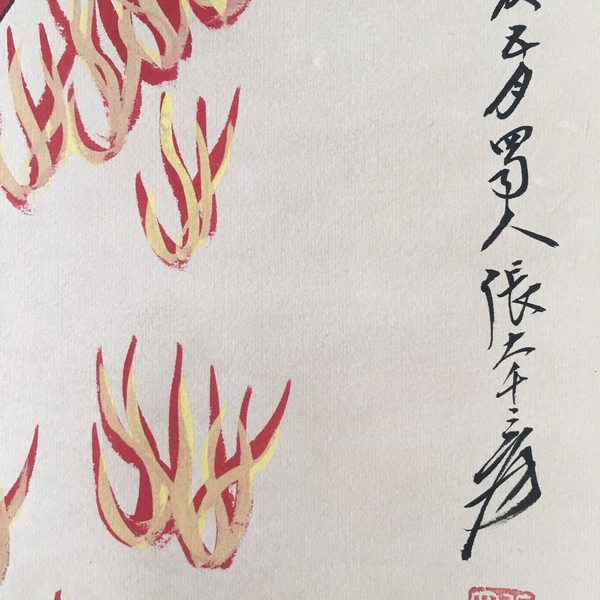 五月蜀人張大千爰